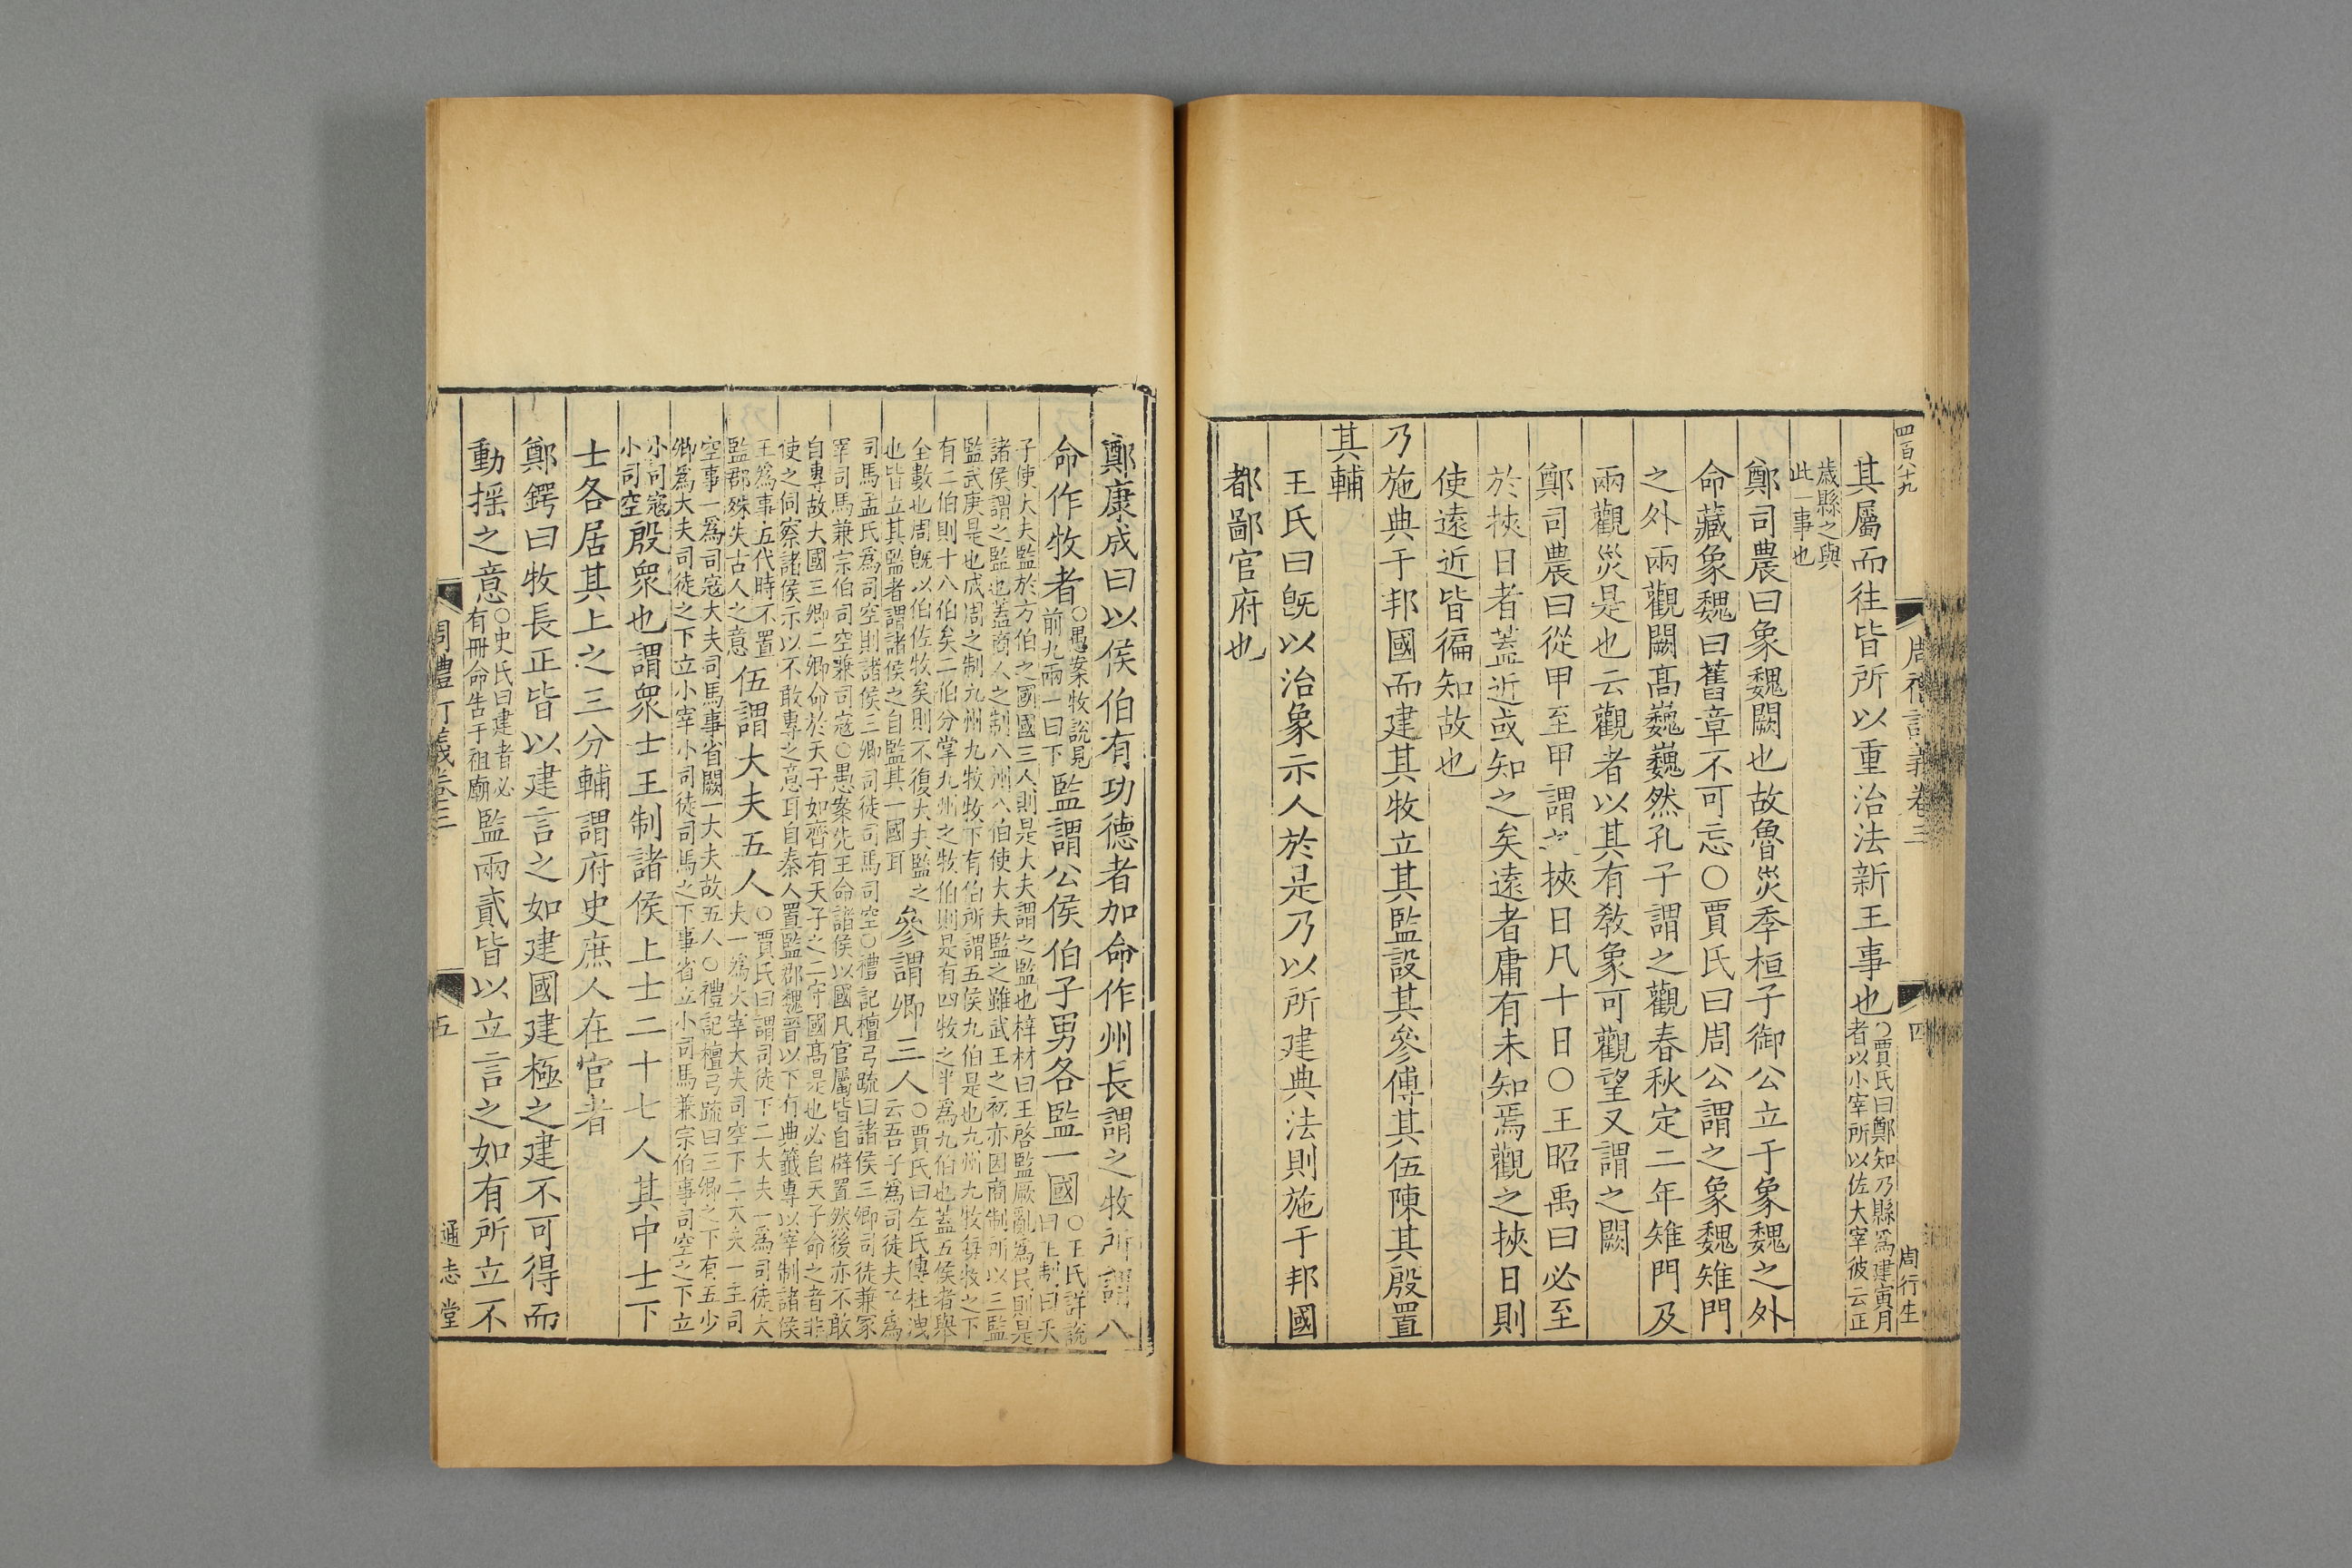 四百八十九
周禮訂義卷三
四
周行生
其屬而往皆所以重治法新王事也○賈氏曰鄭知乃縣爲建寅月
者以小宰所以佐大宰彼云正
歲縣之與
此一事也
鄭司農曰象魏闕也故魯災季桓子御公立于象魏之外
命藏象魏曰舊章不可忘○賈氏曰周公謂之象魏雉門
之外兩觀闕髙巍巍然孔子謂之觀春秋定二年雉門及
兩觀災是也云觀者以其有敎象可觀望又謂之闕
鄭司農曰從甲至甲謂之挾日凡十日○王昭禹曰必至
於挾日者蓋近或知之矣遠者庸有未知焉觀之挾日則
使遠近皆徧知故也
乃施典于邦國而建其牧立其監設其參傅其伍陳其殷置
其輔
王氏曰旣以治象示人於是乃以所建典法則施于邦國
都鄙官府也
鄭康成曰以侯伯有功德者加命作州長謂之牧所謂八
命作牧者○愚案牧說見
前九兩一曰下
監謂公侯伯子男各監一國○王氏詳說
曰王制曰天
子使大夫監於方伯之國國三人則是大夫謂之監也梓材曰王啓監厥亂爲民則是
諸侯謂之監也蓋商人之制八州八伯使大夫監之雖武王之初亦因商制所以三監
監武庚是也成周之制九州九牧牧下有伯所謂五侯九伯是也九州九牧每牧之下
有二伯則十八伯矣二伯分掌九州之牧伯則是有四牧之半爲九伯也蓋五侯者舉
全數也周旣以伯佐牧矣則不復大夫監之
也皆立其監者謂諸侯之自監其一國耳
參謂卿三人○賈氏曰左氏傳杜洩
云吾子爲司徒夫子爲
司馬孟氏爲司空則諸侯三卿司徒司馬司空○禮記檀弓疏曰諸侯三卿司徒兼冢
宰司馬兼宗伯司空兼司寇○愚案先王命諸侯以國凡官屬皆自辟置然後亦不敢
自專故大國三卿二卿命於天子如齊有天子之二守國髙是也必自天子命之者非
使之伺察諸侯示以不敢專之意耳自秦人置監郡魏晉以下有典籤專以宰制諸侯
王爲事五代時不置
監郡殊失古人之意
伍謂大夫五人○賈氏曰謂司徒下二大夫一爲司徒大
夫一爲大宰大夫司空下二大夫一主司
空事一爲司寇大夫司馬事省闕一大夫故五人○禮記檀弓疏曰三卿之下有五少
卿爲大夫司徒之下立小宰小司徒司馬之下事省立小司馬兼宗伯事司空之下立
小司寇
小司空
殷衆也謂衆士王制諸侯上士二十七人其中士下
士各居其上之三分輔謂府史庶人在官者
鄭鍔曰牧長正皆以建言之如建國建極之建不可得而
動揺之意○史氏曰建者必
有冊命告于祖廟
監兩貳皆以立言之如有所立不
周禮訂義卷三
五
通志堂